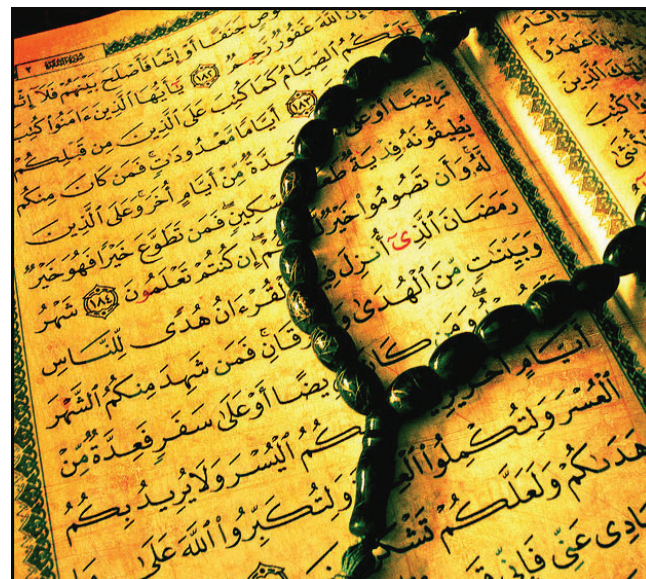 جَنَفًا أَوْ إِثْمًا فَأَصْلَحَ بَيْنَهُمْ فَلَآ إِثْمَ
إِنَّ ٱللَّهَ غَفُورٌ رَّحِيمٌ ١٨٢ يَٰٓأَيُّهَا ٱلَّذِينَ ءَامَنُوا۟ كُتِبَ
عَلَيْكُمُ ٱلصِّيَامُ كَمَا كُتِبَ عَلَى ٱلَّذِينَ مِن قَبْلِكُمْ
١٨٣ أَيَّامًا مَّعْدُودَٰتٍ فَمَن كَانَ مِنكُم
مَّرِيضًا أَوْ عَلَىٰ فَعِدَّةٌ مِّنْ أَيَّامٍ أُخَرَ وَعَلَى ٱلَّذِينَ
يُطِيقُونَهُۥ فِدْيَةٌ مِسْكِينٍ فَمَن تَطَوَّعَ خَيْرًا فَهُوَ خَيْرٌ
لَّهُۥ وَأَن تَصُومُوا۟ خَيْرٌ لَّكُمْ إِن كُنتُمْ تَعْلَمُونَ ١٨٤ شَهْرُ
رَمَضَانَ ٱلَّذِىٓ أُنزِلَ فِيهِ ٱلْقُرْءَانُ هُدًى لِّلنَّاسِ
وَبَيِّنَٰتٍ مِّنَ ٱلْهُدَىٰ وَٱلْفُرْقَانِ فَمَن شَهِدَ مِنكُمُ ٱلشَّهْرَ
وَمَن كَانَ مَرِيضًا أَوْ عَلَىٰ سَفَرٍ فَعِدَّةٌ مِّنْ
أَيَّامٍ أُخَرَ بِكُمُ ٱلْيُسْرَ وَلَا يُرِيدُ بِكُمُ
ٱلْعُسْرَ وَلِتُكْمِلُوا۟ وَلِتُكَبِّرُوا۟ ٱللَّهَ عَلَىٰ مَا
هَدَىٰكُمْ وَلَعَلَّكُمْ تَشْكُرُونَ
عَنِّى فَإِنِّى
وَأَقَامَ
عَٰهَدُوا۟
ٱلَّذِينَ
كُتِبَ